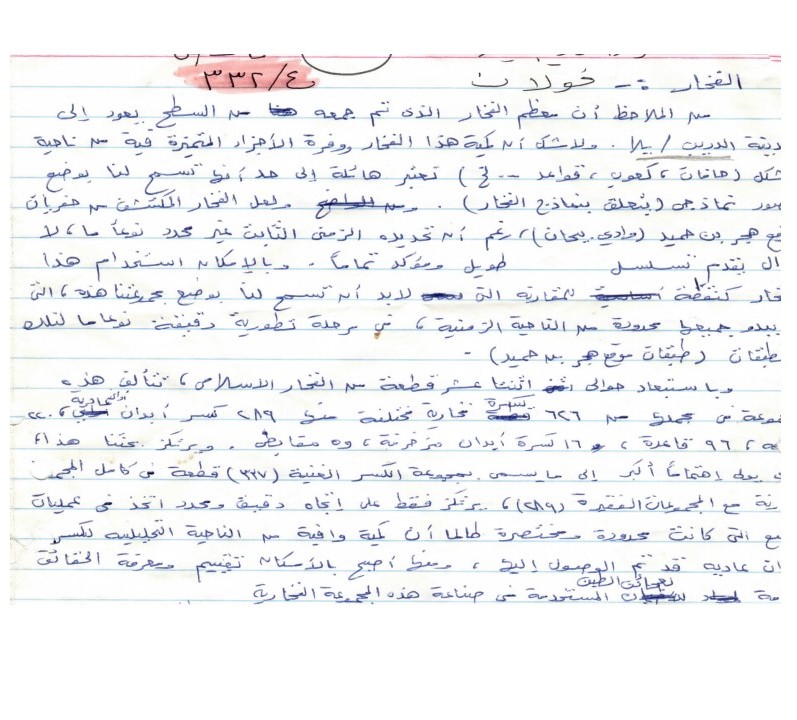 ٣٣٢/٤
الفخار :- خولان
من الملاحظ أن معظم الفخار الذى تم جمعه من السطح يعود إلى
دينة الدريب / يلا . ولاشك أن كمية هذا الفخار ووفرة الأجزاء المتميزة فية من ناحية
شكل (حافات ، كعوب ، قواعد --- الخ) تعتبر هائلة إلى حد أنها تسمح لنا بوضع
ور نماذجى (يتعلق بنماذج الفخار) . ولعل الفخار المكتشف من حفريات
ع هجر بن حميد (وادي بيحان) ، رغم أن تحديده الزمنى الثابت غير محدد نوعاً ما ، لا
ال يقدم تسلسل طويل ومؤكد تماماً . وبالإمكان استخدام هذا
خار كنقطة للمقارنة التى لابد أن تسمح لنا بوضع مجموعتنا هذه ، التى
يبدو جميعها محدودة من الناحية الزمنية ، فى مرحلة تطورية دقيقة نوعا ما لتلك
طبقات (طبقات موقع هجر بن حميد) -
وبا ستبعاد حوالى اثنتا عشر قطعة من الفخار الاسلامى ، تتألف هذه
موعة فى مجملها من ٦٢٦ كسرة فخارية مختلفة منها ٢٨٩ كسر أبدان والعادية ، ٢٢٠
، ٩٦ قاعدة ، و ١٦ كسرة أبدان مزخرفة ، و٥ مقابض . ويرتكز بحثنا هذا
ى يولى إهتماماً أكبر إلى ما يسمى بمجموعة الكسر الغنية (٣٣٧) قطعة فى كامل
رنة مع المجموعات الفقيرة (٢٨٩) ، يرتكز فقط على إتجاه دقيق ومحدد اتخذ فى عمليات
مع التى كانت محدودة ومختصرة طالما أن كمية وافية من الناحية التحليلية لكسر
ان عاديه قد تم الوصول إليها ، ومنها أصبح بالأمكان تقييم ومعرفة الحقائق
مة لعجائن الطين المستخدمة فى صناعة هذه المجموعة الفخارية